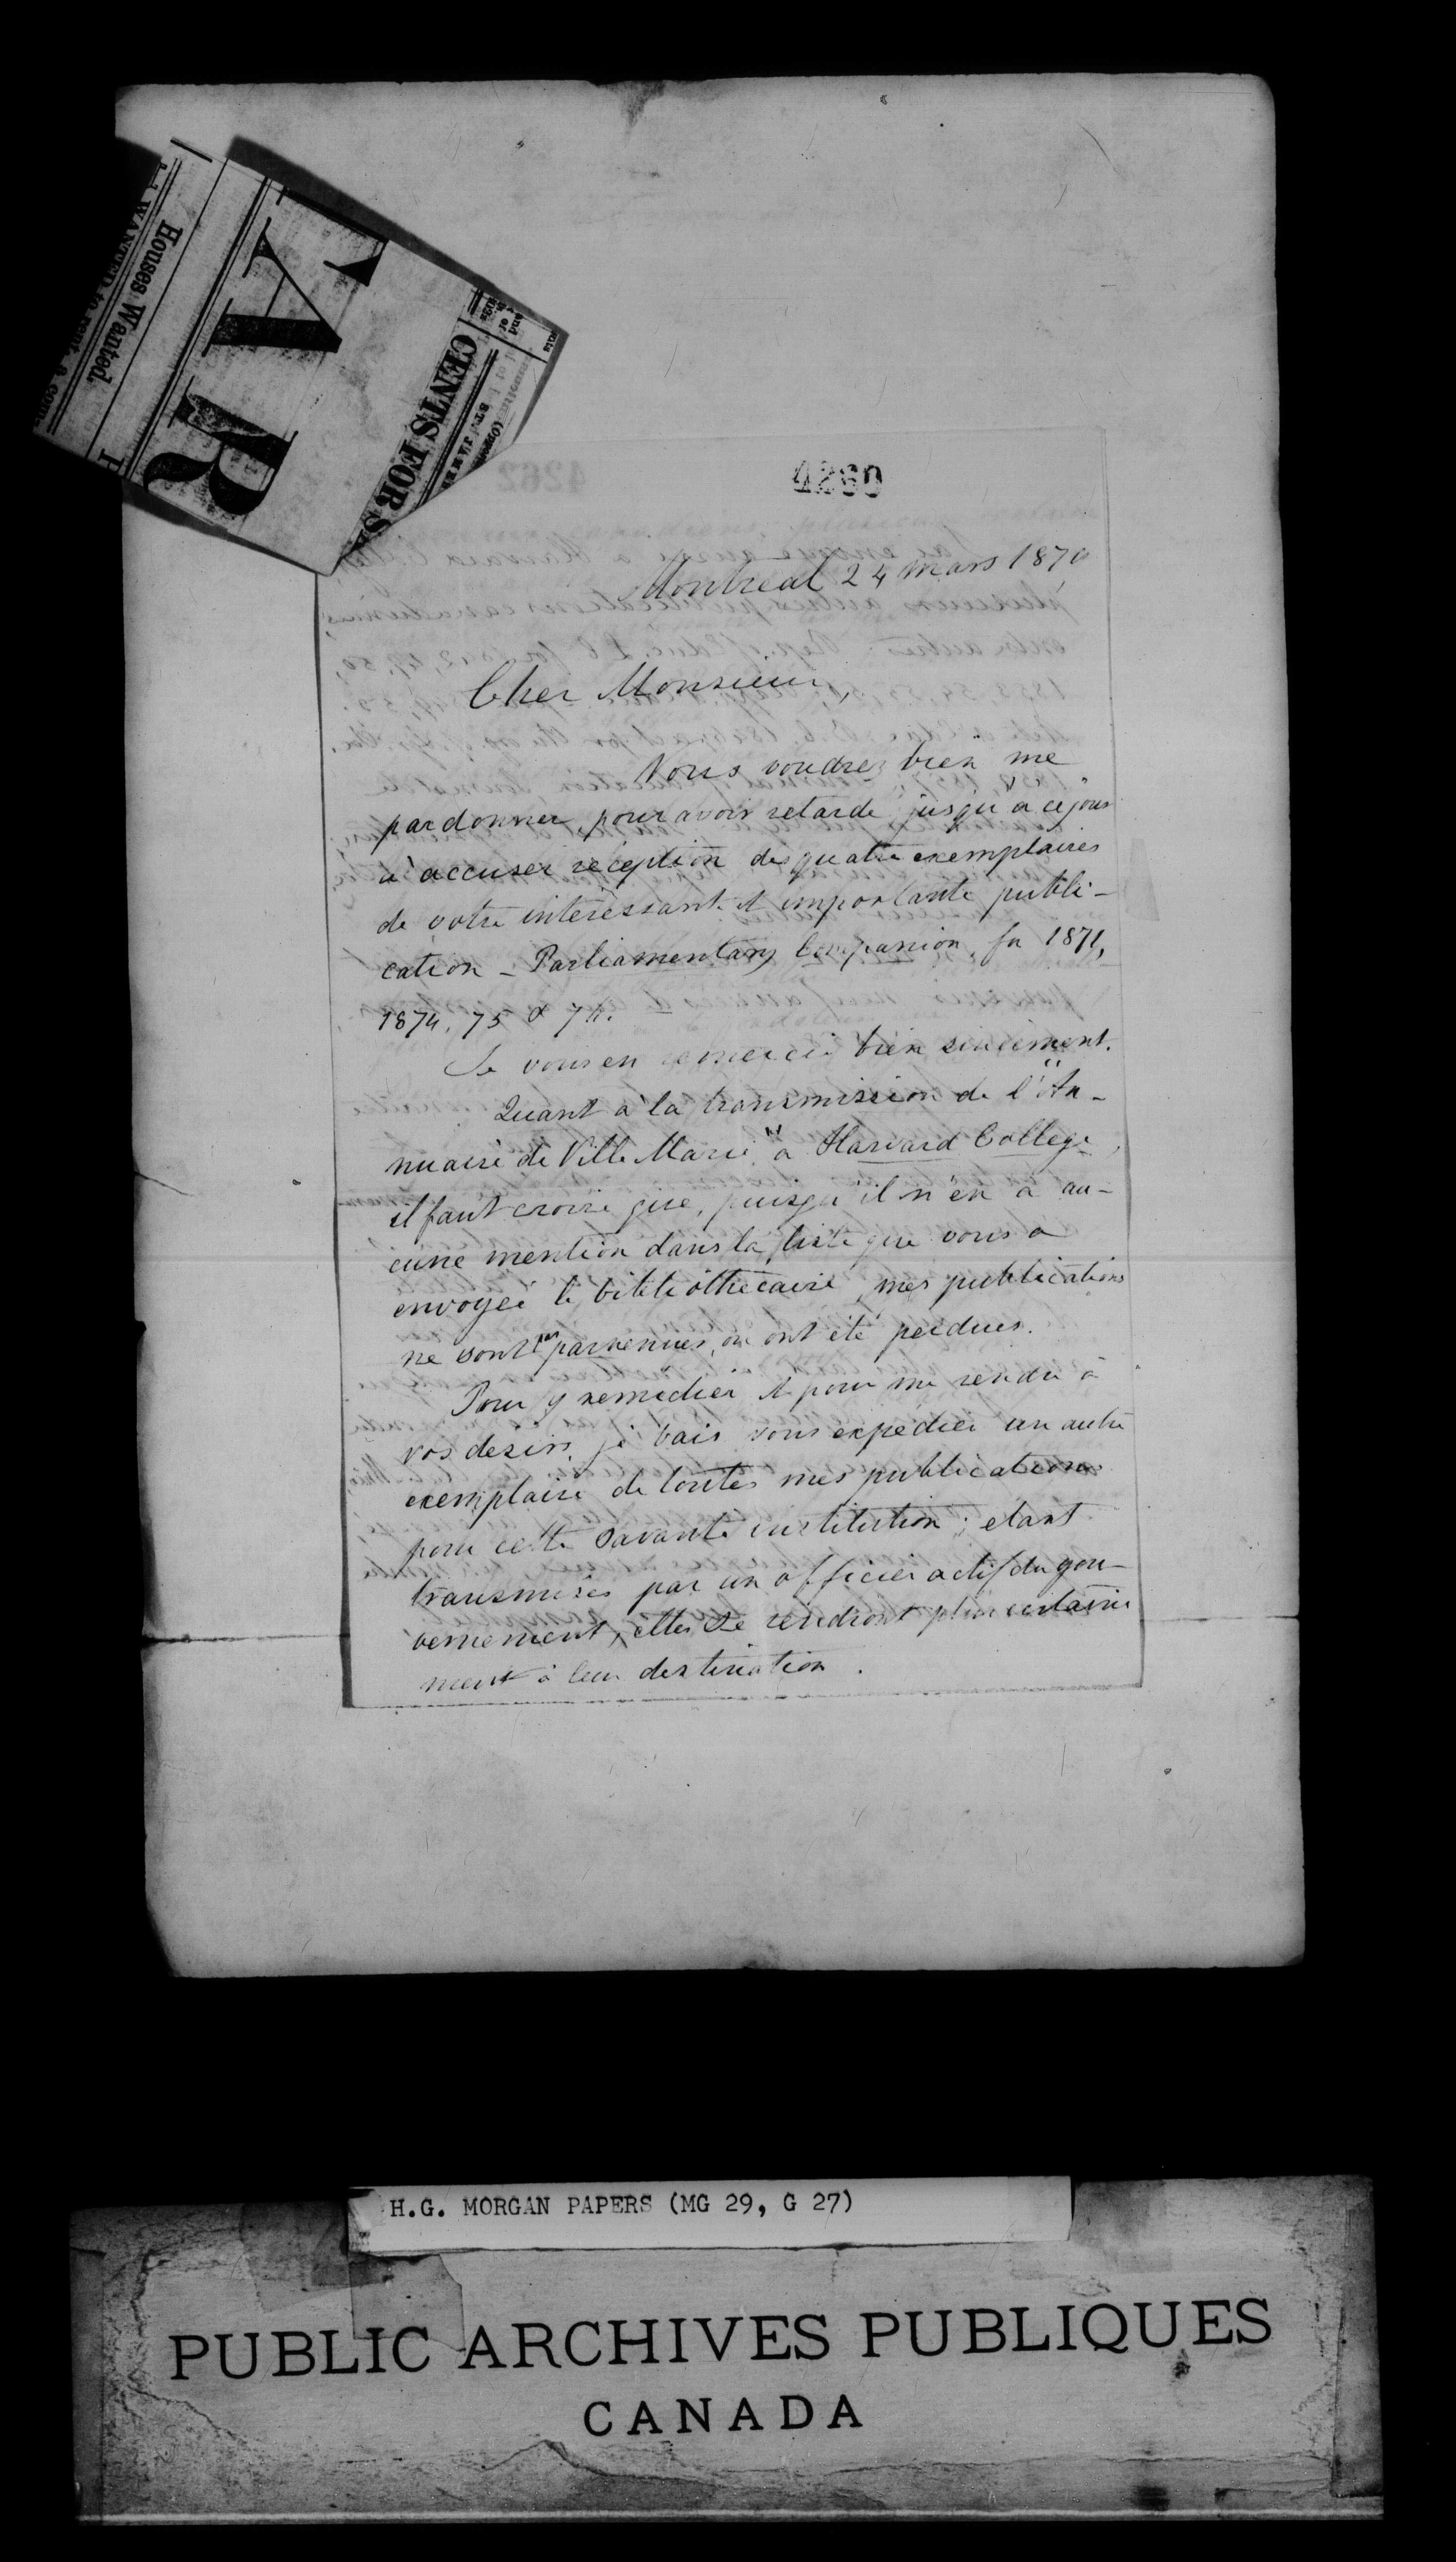 WANTED to rent, a com
Houses Wanted.
AR
CENTS FOR S
4260
Montréal 24 mars 187
Cher Monsieur,
Vous voudrez bien me
pardonner pour avoir retardé jusqu'à ce jour
à accuser réception des quatre exemplaires
de votre intéressant et importante publi-
cation - Parliamentary Companion, for 1871,
1874, 75 & 76.
Je vous en remercie bien sincèrement.
Quant à la transmission de l'"An-
nuaire de Ville Marie" à Harvard College,
il faut croire que, puisqu'il n'en a au-
cune mention dans la liste que vous a
envoyée le bibliothécaire, mes publications
ne sont pas parvenues, ou ont été perdues.
Pour y remédier et pour me rendre à
vos desirs, je vais vous expédier un autre
exemplaire de toutes mes publications
pour cette savante institution; etant
transmises par un officier actif du gou-
vernement, elles se rendront plus certaine
ment à leur destination.
H.G. MORGAN PAPERS (MG 29, G 27)
PUBLIC ARCHIVES PUBLIQUES
CANADA